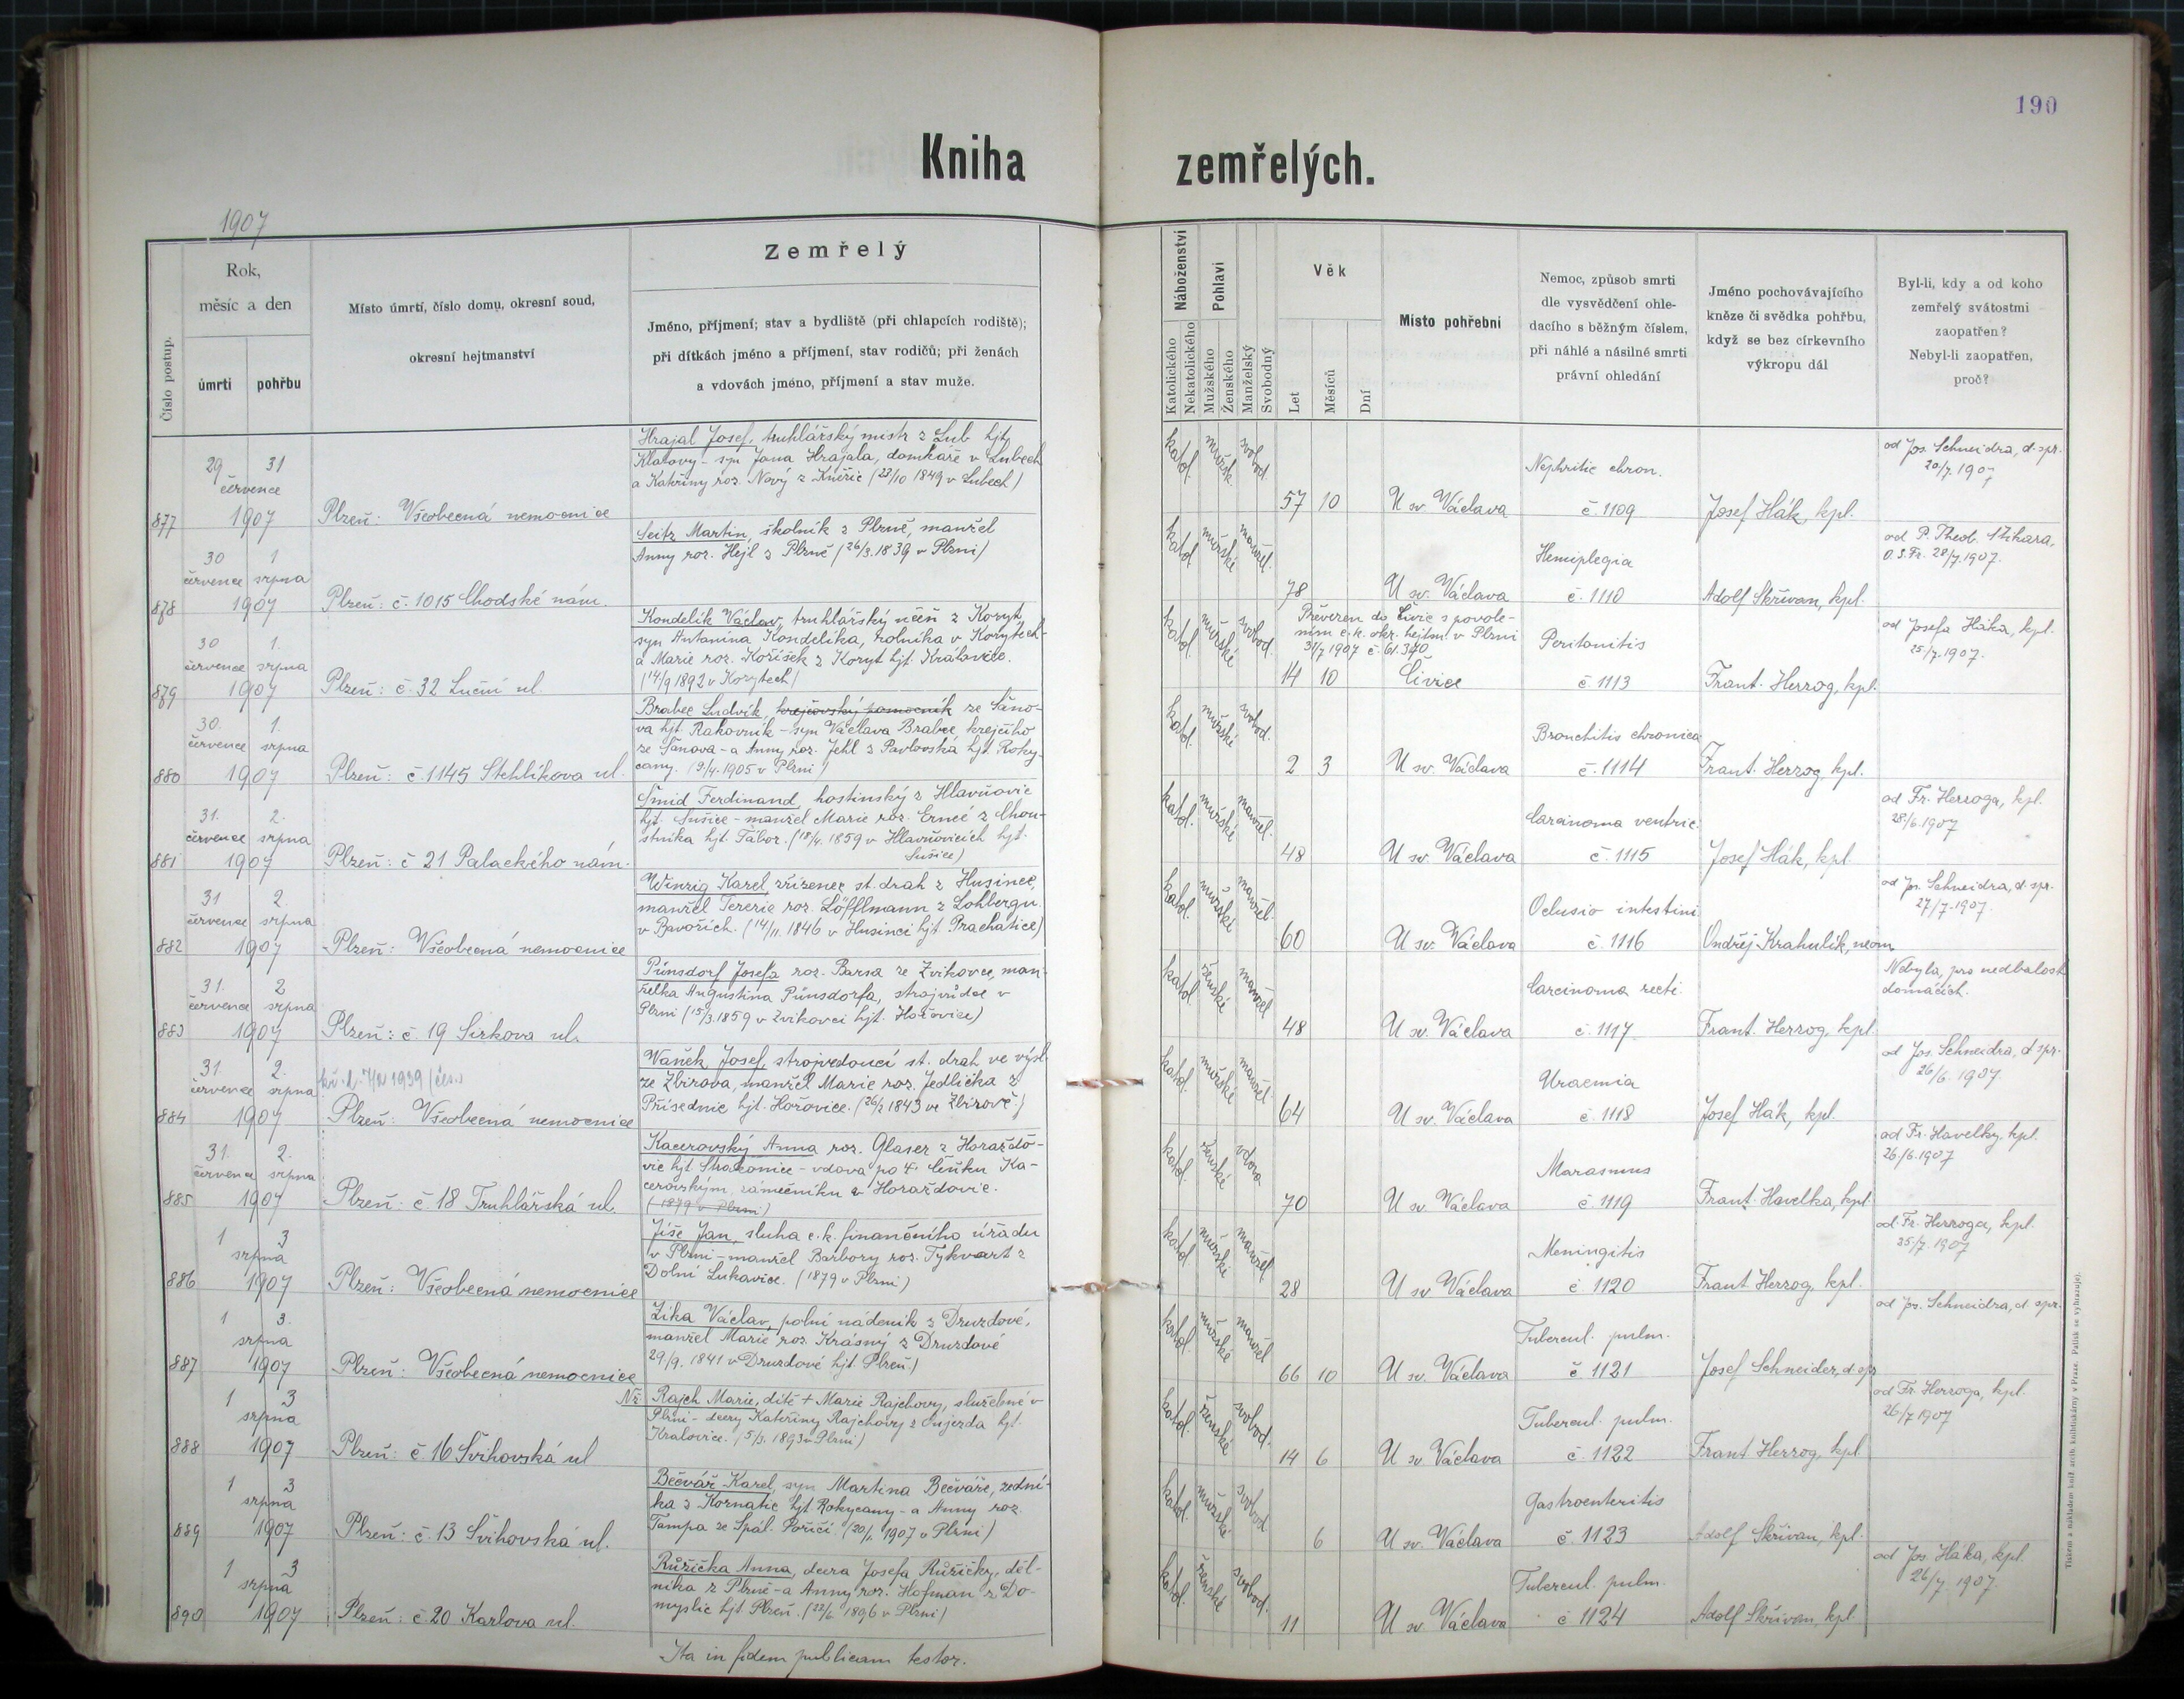 190
Kniha zemřelých.
1907
Číslo postup.
Rok,
měsíc a den
úmrtí
pohřbu
Místo úmrtí, číslo domu, okresní soud,
okresní hejtmanství
Zemřelý
Jméno, příjmení; stav a bydliště (při chlapcích rodiště);
při dítkách jméno a příjmení, stav rodičů; při ženách
a vdovách jméno, příjmení a stav muže.
Náboženství
Katolického
Nekatolického
Pohlaví
Mužského
Ženského
Manželský
Svobodný
Věk
Let
Měsíců
Dní
Místo pohřební
Nemoc, způsob smrti
dle vysvědčení ohle-
dacího s běžným číslem,
při náhlé a násilné smrti
právní ohledání
Jméno pochovávajícího
kněze či svědka pohřbu,
když se bez církevního
výkropu dál
Byl-li, kdy a od koho
zemřelý svátostmi
zaopatřen?
Nebyl-li zaopatřen,
proč?
877
29 31
července
1907
Plzeň: Všeobecná nemocnice
Hrajal Josef, truhlářský mistr z Lub hjt.
Klatovy - syn Jana Hrajala, domkáře v Lubech
a Kateřiny roz. Nový z Kněžic (23/10 1849 v Lubech)
katol. mužsk. svobod.
57 10
U sv. Václava
Nephritic chron.
č. 1109
Josef Hák, kpl.
od Jos. Schneidra, d. spr.
20/7. 1907
878
30 1
července srpna
1907
Plzeň: č. 1015 Chodské nám.
Seitz Martin, školník z Plzně, manžel
Anny roz. Hejl z Plzně (26/3. 1839 v Plzni)
katol. mužské manžel.
78
U sv. Václava
Hemiplegia
č. 1110
Adolf Skřivan, kpl.
od P. Theob.
O. S. Fr. 28/7. 1907.
879
30 1.
července srpna
1907
Plzeň: č. 32 Luční ul.
Kondelík Václav, truhlářský učeň z Koryt,
syn Antonína Kondelíka, rolníka v Korytech-
a Marie roz. Kořišek z Koryt hjt. Kralovice.
(14/9 1892 v Korytech)
katol. mužské svobod.
Převezen do Čivic s povole-
ním c.k. okr. hejtm. v Plzni
31/7 1907 č. 61.340
14 10
Čivice
Peritonitis
č. 1113
Frant. Herzog, kpl.
od Josefa Háka, kpl.
25/7. 1907.
880
30. 1.
července srpna
1907
Plzeň: č. 1145 Stehlíkova ul.
Brabec Ludvík, krejčovský pomocník ze Šáno-
va hjt. Rakovník - syn Václava Brabce, krejčího
ze Šanova - a Anny roz. Jehl z Pavlovska hjt. Roky-
cany. (9/4. 1905 v Plzni)
katol. mužské svobod.
2 3
U sv. Václava
Bronchitis chronica
č. 1114
Frant. Herzog, kpl.
881
31. 2.
července srpna
1907
Plzeň: č 21 Palackého nám.
Šmid Ferdinand, hostinský z Hlavňovic
hjt. Sušice - manžel Marie roz. Ernee z Chou-
stníka hjt. Tábor. (18/4. 1859 v Hlavňovicích hjt.
Sušice)
katol. mužské manžel.
48
U sv. Václava
Carcinoma ventric.
č. 1115
Josef Hák, kpl.
od Fr. Herzoga, kpl.
28/6. 1907
882
31 2.
července srpna
1907
Plzeň: Všeobecná nemocnice
Winzig Karel, zřízenec st. drah z Husince,
manžel Terezie roz. Löfflmann z Lohbergu
v Bavořích. (14/11. 1846 v Husinci hjt. Prachatice)
katol. mužské manžel.
60
U sv. Václava
Oclusio intestini
č. 1116
Ondřej Krahulík, neom.
od Jos. Schneidra, d. spr.
27/7. 1907.
883
31. 2
července srpna
1907
Plzeň: č. 19 Sirkova ul.
Pünsdorf Josefa roz. Barsa ze Zvíkovce, man-
želka Augustina Pünsdorfa, strojvůdce v
Plzni (15/3. 1859 v Zvíkovci hjt. Hořovice)
katol. ženské manžel
48
U sv. Václava
Carcinoma recti.
č. 1117
Frant. Herzog, kpl.
Nebyla, pro nedbalost
domácích.
884
31. 2.
července srpna
1907
Plzeň: Všeobecná nemocnice
Waněk Josef, strojvedoucí st. drah ve výsl.
ze Zbirova, manžel Marie roz. Jedlička z
Přísednic hjt. Hořovice. (26/2 1843 ve Zbirově)
katol. mužské manžel.
64
U sv. Václava
Uraemia
č. 1118
Josef Hák, kpl.
od Jos. Schneidra, d. spr.
26/6. 1907.
885
31. 2.
července srpna
1907
Plzeň: č. 18 Truhlářská ul.
Kacerovský Anna roz. Glaser z Horažďo-
vic hjt. Strakonice - vdova po Ka-
cerovským, zámečníku v Horažďovic.
(1879 v Plzni)
katol. ženské vdova
70
U sv. Václava
Marasmus
č. 1119
Frant. Havelka, kpl.
od Fr. Havelky, kpl.
26/6. 1907
886
1 3
srpna
1907
Plzeň: Všeobecná nemocnice
Jíše Jan, sluha c.k. finančního úřadu
v Plzni - manžel Barbory roz. Tykvart z
Dolní Lukavice. (1879 v Plzni)
katol. mužské manžel.
28
U sv Václava
Meningitis
č 1120
Frant Herzog, kpl.
od Fr. Herzoga, kpl.
25/7. 1907
887
1 3.
srpna
1907
Plzeň: Všeobecná nemocnice
Zíka Václav, polní nádeník z Druzdové,
manžel Marie roz. Krásný z Druzdové
29/9. 1841 v Druzdové hjt Plzeň)
katol. mužské manžel
66 10
U sv. Václava
Tubercul. pulm.
č 1121
Josef Schneider, d. spr
od Jos. Schneidra, d. spr.
888
1 3
srpna
1907
Plzeň: č 16 Švihovská ul
Nž. Rajch Marie, dítě + Marie Rajchovy, služebné v
Plzni - dcery Kateřiny Rajchovy z Oujezda hjt.
Kralovice. (5/3. 1893 v Plzni)
katol. ženské svobod.
14 6
U sv Václava
Tubercul. pulm.
č. 1122
Frant Herzog, kpl
od Fr. Herzoga, kpl.
26/7 1907
889
1 3
srpna
1907
Plzeň: č. 13 Švihovská ul.
Bečvář Karel, syn Martina Bečváře, zední-
ka z Kornatic hjt. Rokycany - a Anny roz.
Tampa ze Spál. Poříčí (20/1 1907 v Plzni)
katol. mužské svobod
6
U sv. Václava
Gastroenteritis
č. 1123
Adolf Skřivan, kpl.
890
1 3
srpna
1907
Plzeň: č. 20 Karlova ul.
Růžička Anna, dcera Josefa Růžičky, děl-
níka z Plzně - a Anny roz. Hofman z Do-
myslic hjt. Plzeň. (22/6 1896 v Plzni)
katol. ženské svobod.
11
U sv. Václava
Tubercul. pulm.
č 1124
Adolf Skřivan, kpl
od Jos. Háka, kpl.
26/7. 1907.
Ita in fidem publicam testor.